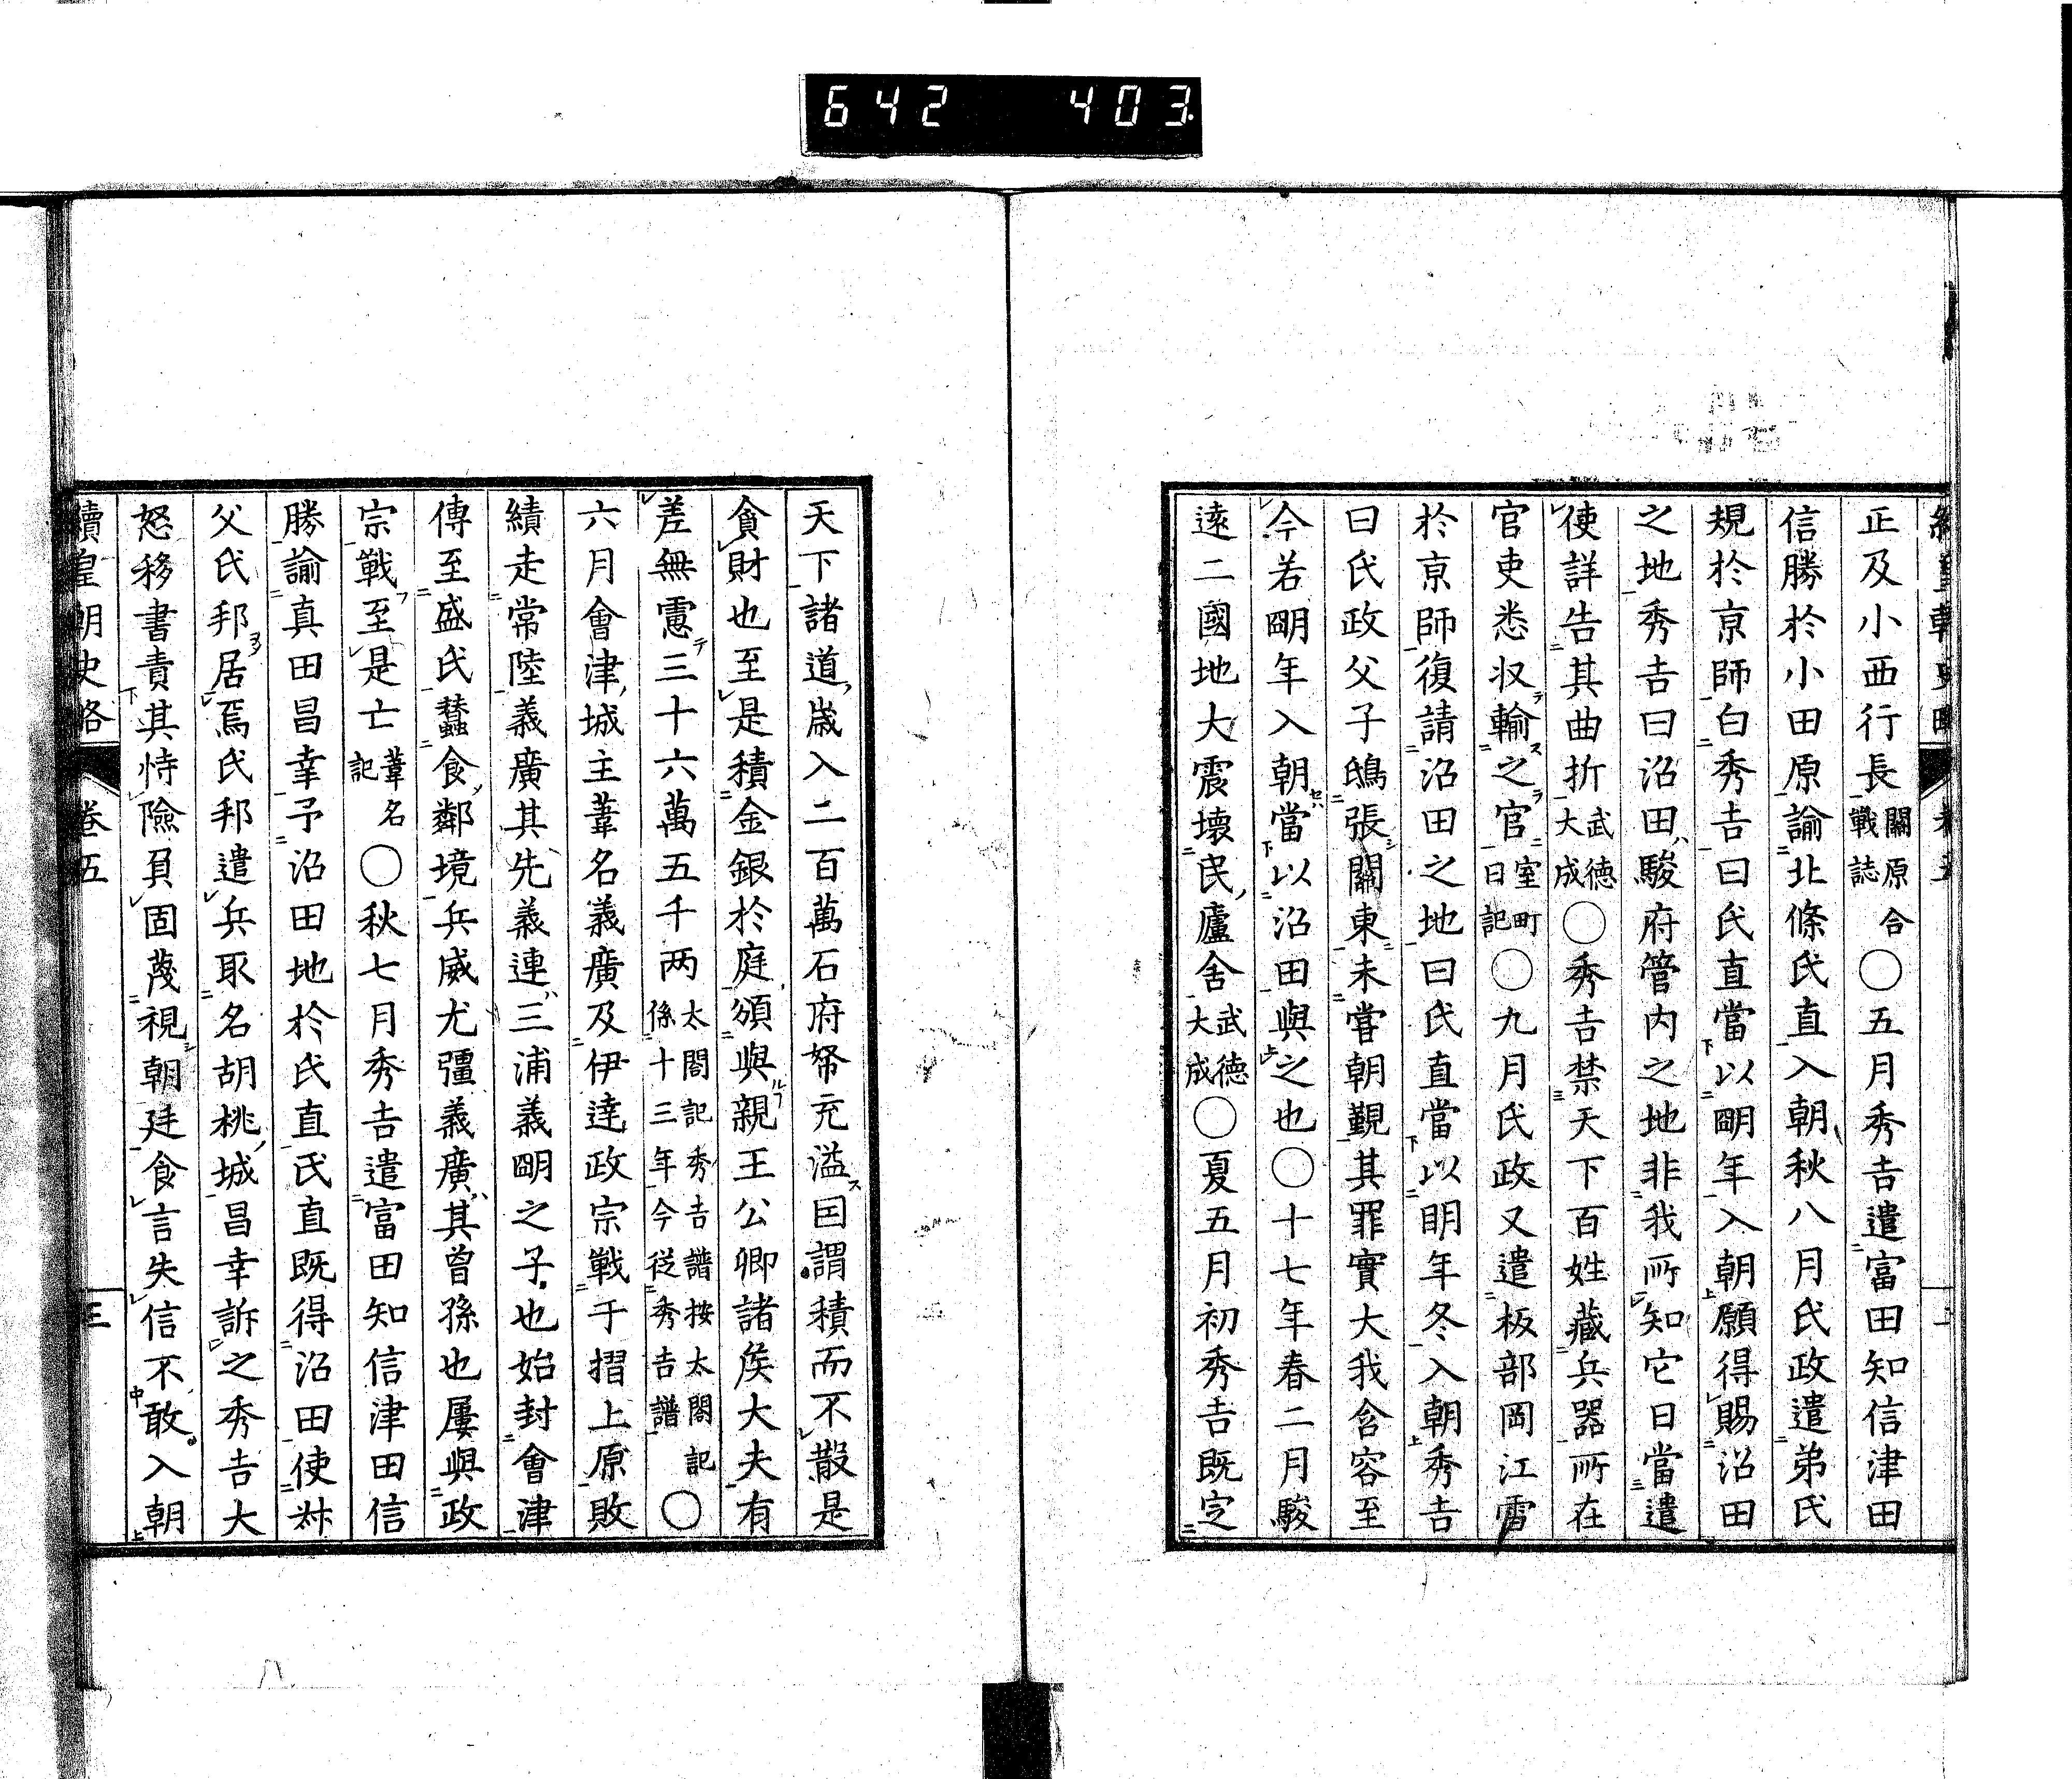 642 403
正及小西行長關原合戰誌○五月秀吉遣富田知信津田
信勝於小田原諭北條氏直入朝秋八月氏政遣弟氏
規於京師白秀吉曰氏直當以明年入朝願得賜沼田
之地秀吉曰沼田駿府管内之地非我所知它日當遣
使詳告其曲折武德大成○秀吉禁天下百姓藏兵器所在
官吏悉収輸之官室町日記○九月氏政又遣板部岡江雪
於京師復請沼田之地曰氏直當以明年冬入朝秀吉
曰氏政父子鴟張關東未嘗朝覲其罪實大我含容至
今若明年入朝當以沼田與之也○十七年春二月駿
遠二國地大震壊民廬舍武德大成○夏五月初秀吉既定
天下諸道歳入二百萬石府帑充溢因謂積而不散是
貪財也至是積金銀於庭頒與親王公卿諸矦大夫有
差無慮三十六萬五千两太閤記秀吉譜按太閤記係十三年今従秀吉譜○
六月會津城主葦名義廣及伊達政宗戰于摺上原敗
績走常陸義廣其先義連三浦義明之子也始封會津
傳至盛氏蠶食鄰境兵威尤彊義廣其曾孫也屢與政
宗戰至是亡葦名記○秋七月秀吉遣富田知信津田信
勝諭真田昌幸予沼田地於氏直氏直既得沼田使叔
父氏邦居焉氏邦遣兵取名胡桃城昌幸訴之秀吉大
怒移書責其恃險負固蔑視朝廷食言失信不敢入朝
續皇朝史略 卷五 三